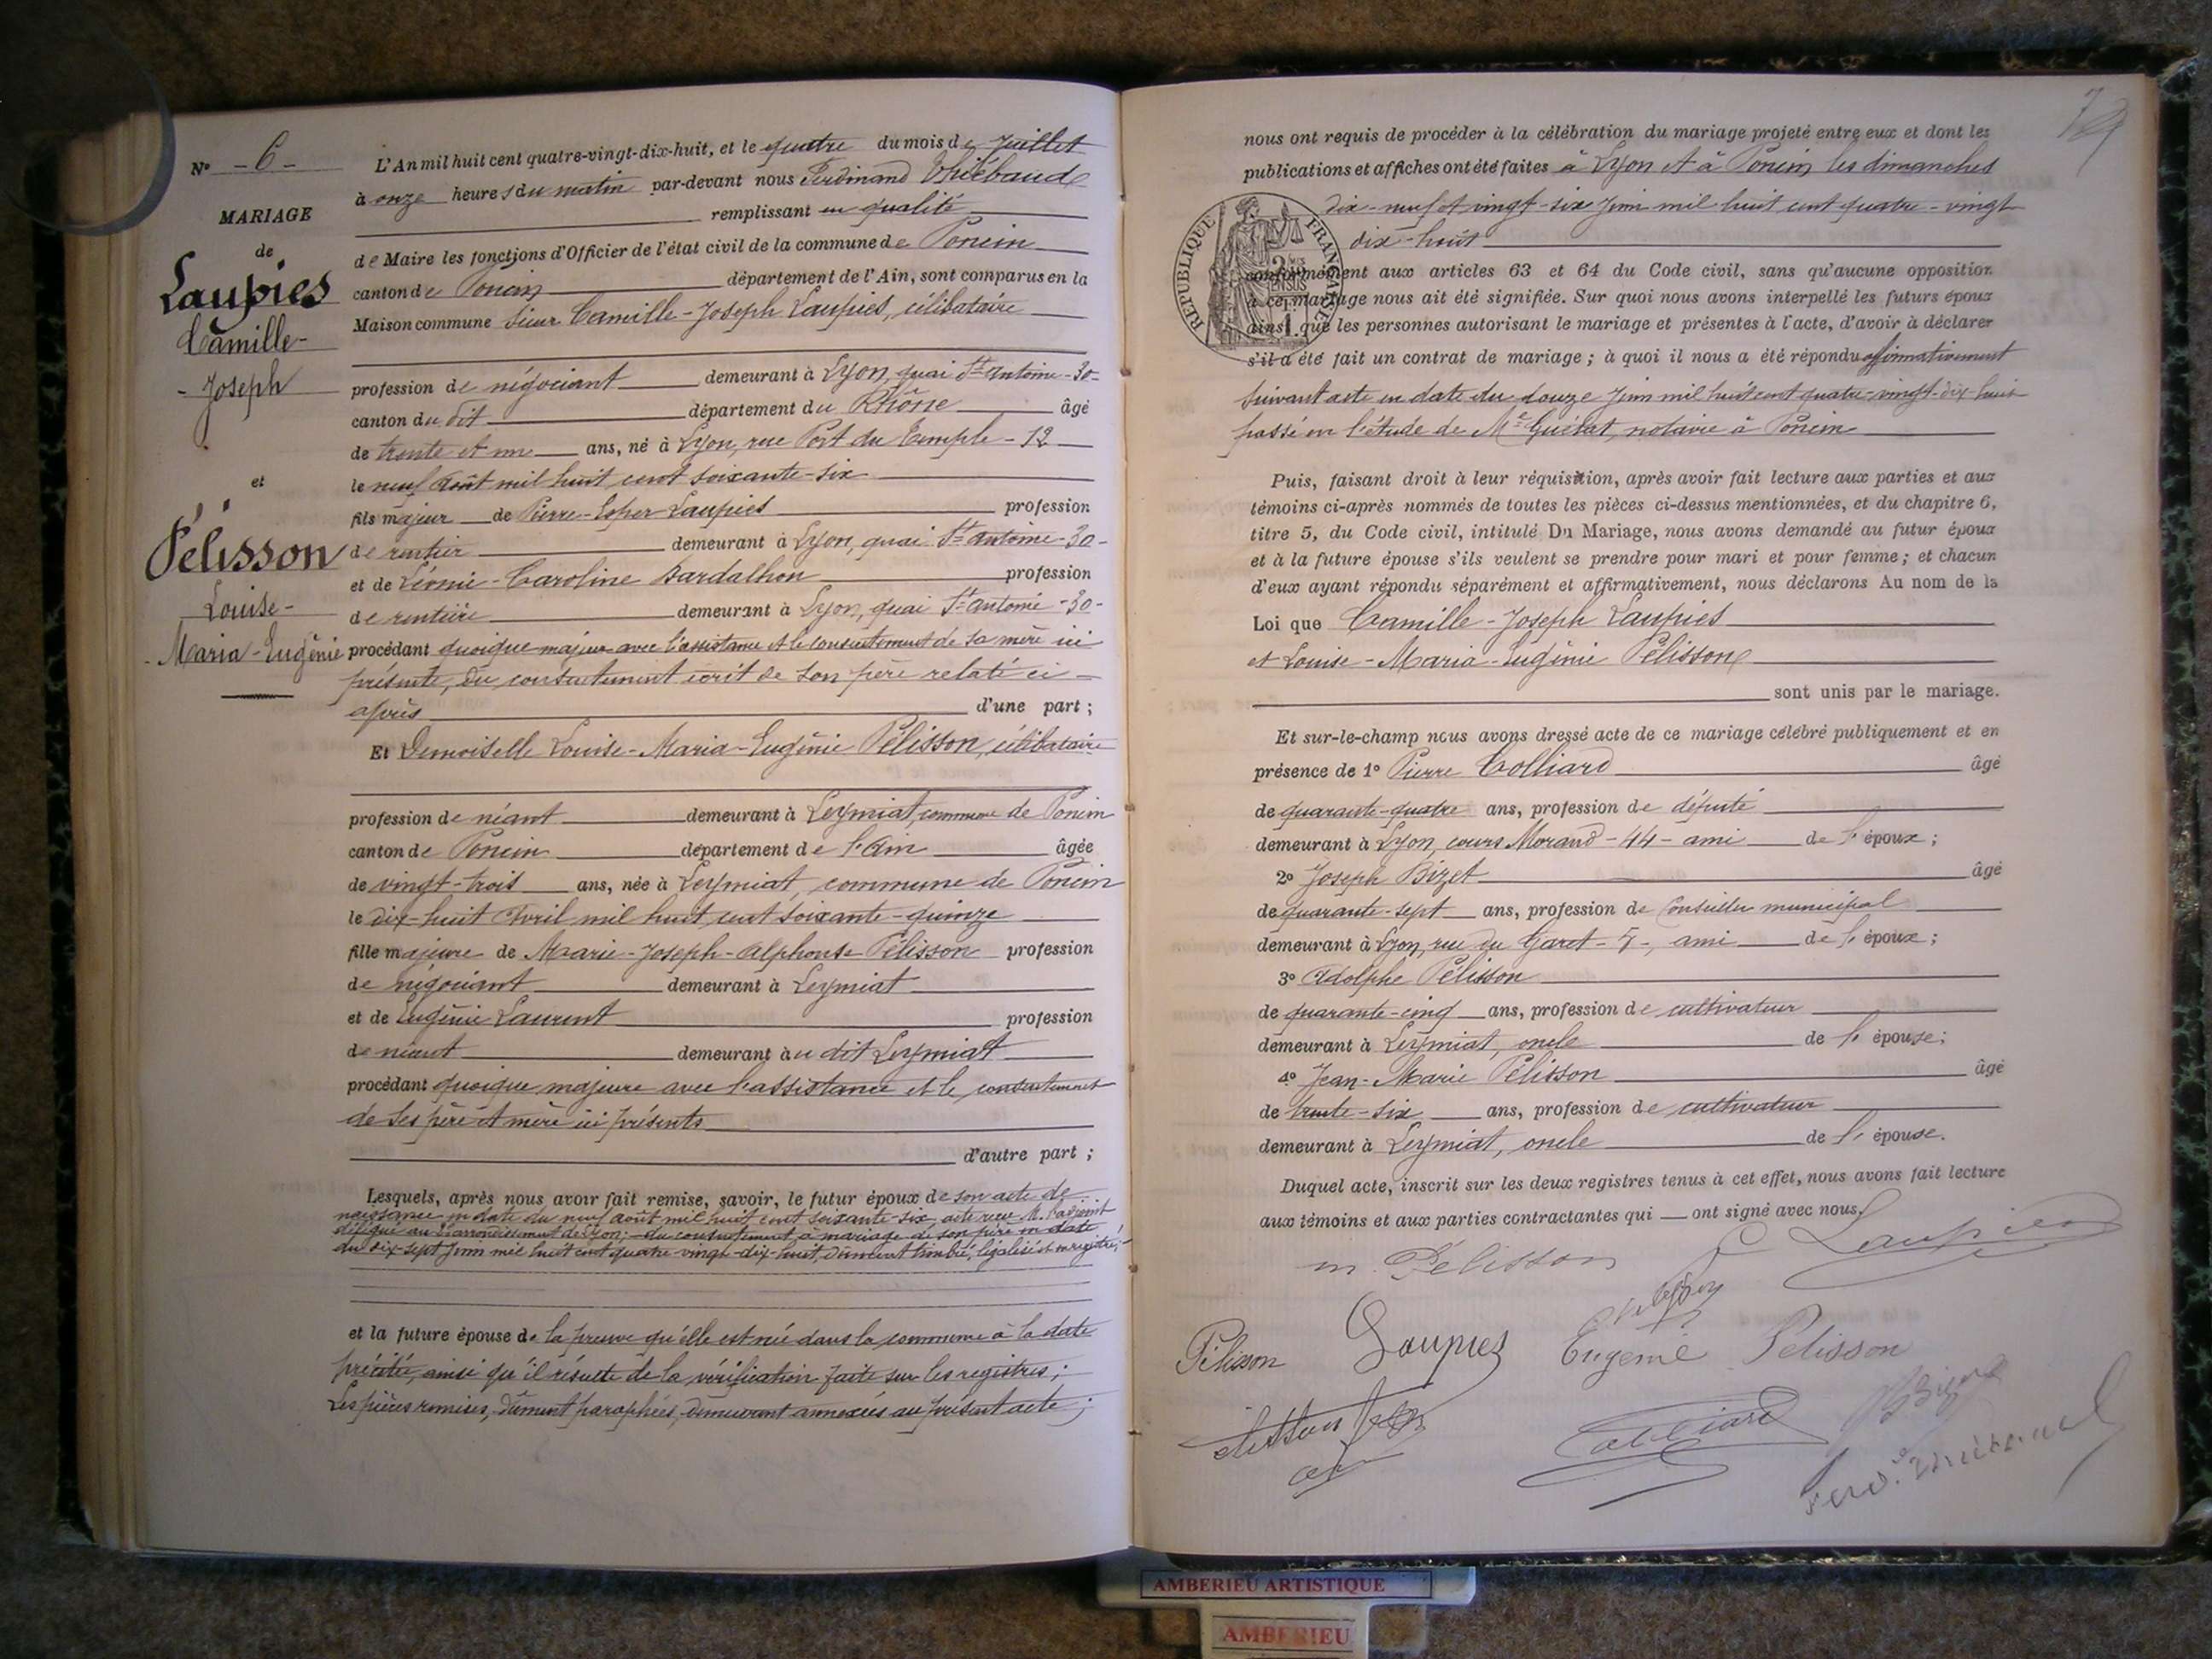 N° - 6 -
MARIAGE
de
Laupies
Camille-
- Joseph
et
Pélisson
Louise-
- Maria-Eugénie
L'An mil huit cent quatre-vingt-dix-huit, et le quatre du mois de Juillet
à onze heures du matin par-devant nous Ferdinand Thiébaud
remplissant en qualité
de Maire les fonctions d'Officier de l'état civil de la commune de Poncin
canton de Poncin département de l'Ain, sont comparus en la
Maison commune Sieur Camille-Joseph Laupies, célibataire
profession de négociant demeurant à Lyon, quai St Antoine - 30 -
canton du dit département du Rhône âgé
de trente et un ans, né à Lyon, rue Port du Temple - 12
le neuf Août mil huit cent soixante-six
fils majeur de Pierre-Esper Laupies profession
de rentier demeurant à Lyon, quai St Antoine - 30 -
et de Léonie-Caroline Bardalhon profession
de rentière demeurant à Lyon, quai St Antoine - 30 -
procédant quoique majeur avec l'assistance et le consentement de sa mère ici
présente, du consentement écrit de son père relaté ci-
après d'une part ;
Et Demoiselle Louise-Maria-Eugénie Pélisson, célibataire
profession de néant demeurant à Leymiat, commune de Poncin
canton de Poncin département de l'Ain âgée
de vingt-trois ans, née à Leymiat, commune de Poncin
le dix-huit Avril mil huit cent soixante-quinze
fille majeure de Marie-Joseph-Alphonse Pélisson profession
de négociant demeurant à Leymiat
et de Eugénie Laurent profession
de néant demeurant au dit Leymiat
procédant quoique majeure avec l'assistance et le consentement
de ses père et mère ici présents
d'autre part ;
Lesquels, après nous avoir fait remise, savoir, le futur époux de son acte de
naissance en date du neuf août mil huit cent soixante-six, acte reçu M.
délégué au arrondissement de Lyon ; du consentement à mariage de son père en date
du dix-sept Juin mil huit cent quatre-vingt-dix-huit, dûment timbré, légalisé et enregistré ;
et la future épouse de la preuve qu'elle est née dans la commune à la date
précitée, ainsi qu'il résulte de la vérification faite sur les registres ;
Les pièces remises, dûment paraphées, demeurent annexées au présent acte ;
nous ont requis de procéder à la célébration du mariage projeté entre eux et dont les
publications et affiches ont été faites à Lyon et à Poncin les dimanches
dix-neuf et vingt-six Juin mil huit cent quatre-vingt
dix-huit
REPUBLIQUE FRANÇAISE
conformément aux articles 63 et 64 du Code civil, sans qu'aucune opposition
à ce mariage nous ait été signifiée. Sur quoi nous avons interpellé les futurs époux
ainsi que les personnes autorisant le mariage et présentes à l'acte, d'avoir à déclarer
s'il a été fait un contrat de mariage ; à quoi il nous a été répondu affirmativement
suivant acte en date du douze Juin mil huit cent quatre-vingt-dix-huit
passé en l'étude de Me Guélat, notaire à Poncin
Puis, faisant droit à leur réquisition, après avoir fait lecture aux parties et aux
témoins ci-après nommés de toutes les pièces ci-dessus mentionnées, et du chapitre 6,
titre 5, du Code civil, intitulé Du Mariage, nous avons demandé au futur époux
et à la future épouse s'ils veulent se prendre pour mari et pour femme ; et chacun
d'eux ayant répondu séparément et affirmativement, nous déclarons Au nom de la
Loi que Camille-Joseph Laupies
et Louise-Maria-Eugénie Pélisson
sont unis par le mariage.
Et sur-le-champ nous avons dressé acte de ce mariage célébré publiquement et en
présence de 1° Pierre Colliard âgé
de quarante-quatre ans, profession de député
demeurant à Lyon, cours Morand - 44 - ami de l' époux ;
2° Joseph Bizet âgé
de quarante-sept ans, profession de Conseiller municipal
demeurant à Lyon, rue du Garet - 5 -, ami de l' époux ;
3° Adolphe Pélisson
de quarante-cinq ans, profession de cultivateur
demeurant à Leymiat, oncle de l' épouse ;
4° Jean-Marie Pélisson âgé
de trente-six ans, profession de cultivateur
demeurant à Leymiat, oncle de l' épouse.
Duquel acte, inscrit sur les deux registres tenus à cet effet, nous avons fait lecture
aux témoins et aux parties contractantes qui ont signé avec nous.
m. Pélisson C Laupies
Pélisson Laupies Eugénie Pelisson
Colliard
AMBERIEU ARTISTIQUE
AMBERIEU